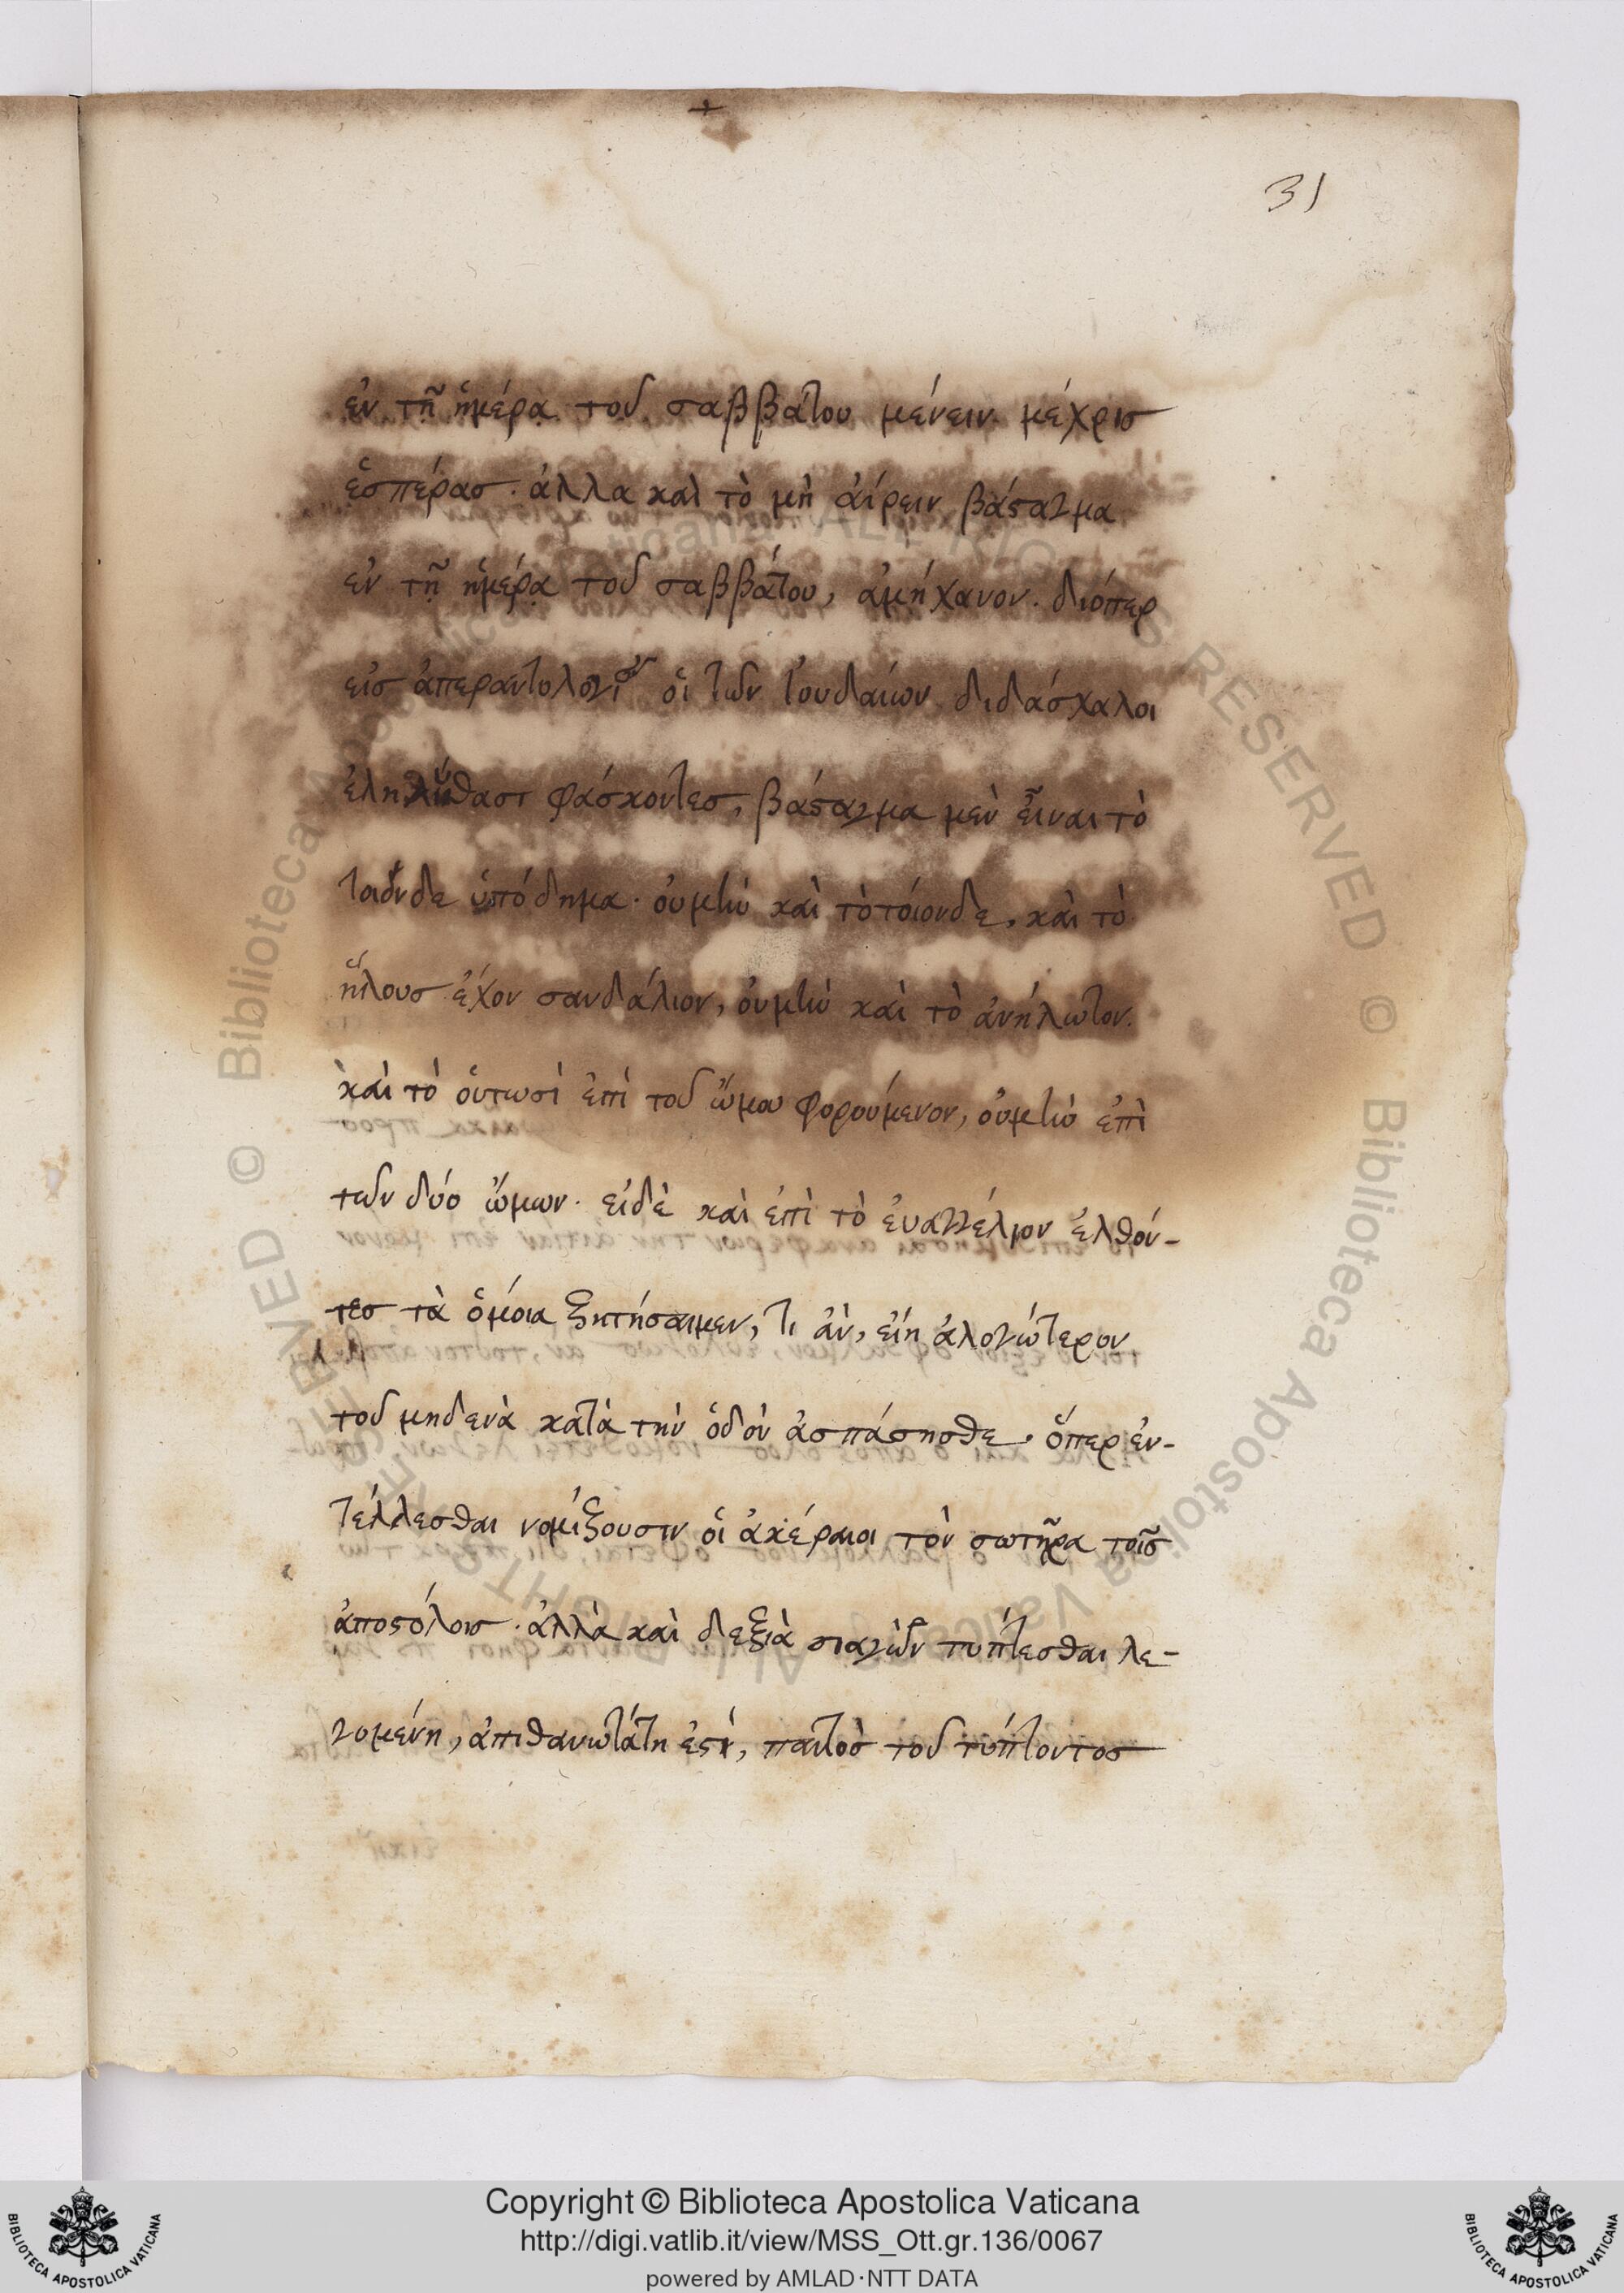 31
ἐν τῇ ἡμέρᾳ τοῦ σαββάτου μένειν μέχρισ
ἑσπέρασ· ἀλλα καὶ τὸ μὴ ἀίρειν βάσαγμα
ἐν τῇ ἡμέρᾳ τοῦ σαββάτου, ἀμήχανον. διόπερ
εἰσ ἀπεραντολογίαν οἱ τῶν ἰουδαίων διδάσκαλοι
ἐληλύθασι φάσκοντεσ, βάσαγμα μὲν εἶναι τὸ
τοιόνδε ὑπόδημα· οὐμὴν καὶ τὸ τόιονδε, καὶ τὸ
ἥλουσ ἔχον σανδάλιον, ὀυμὴν καὶ τὸ ἀνήλωτον.
καὶ τὸ ὁυτωσὶ ἐπὶ τοῦ ὤμου φορούμενον, οὐμὴν ἐπὶ
τῶν δύο ὤμων· εἰδὲ καὶ ἐπὶ τὸ ἐυαγγέλιον ἐλθόν-
τεσ τὰ ὅμοια ζητήσαιμεν, τι ἂν, εἴη ἀλογώτερον
τοῦ μηδενὰ κατὰ τὴν ὁδὸν ἀσπάσησθε. ὅπερ ἐν-
τέλλεσθαι νομίζουσιν ὁι ἀκέραιοι τὸν σωτῆρα τοῖσ
ἀποστόλοισ· ἀλλὰ καὶ δεξιὰ σιαγὼν τυπτεσθαι λε-
γομένη, ἀπιθανωτάτη ἐστὶ, παντὸσ τοῦ τύπτοντοσ
© Biblioteca Apostolica Vaticana ALL RIGHTS RESERVED
Copyright © Biblioteca Apostolica Vaticana
http://digi.vatlib.it/view/MSS_Ott.gr.136/0067
powered by AMLAD·NTT DATA
BIBLIOTECA APOSTOLICA VATICANA
BIBLIOTECA APOSTOLICA VATICANA